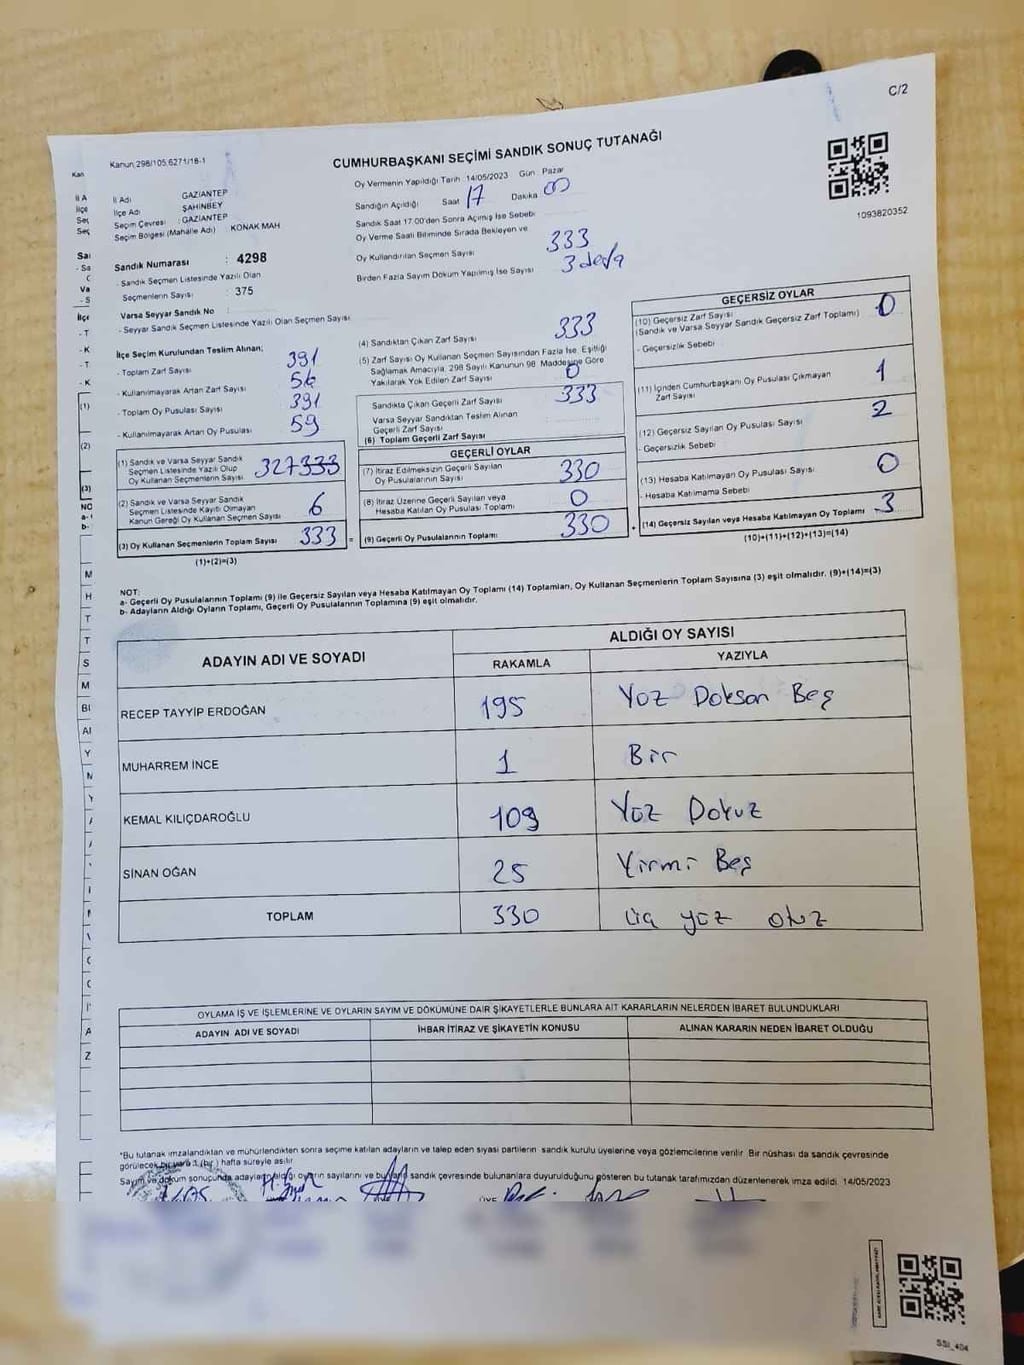 C/2
Kanun 298/105,6271/18-1
CUMHURBAŞKANI SEÇİMİ SANDIK SONUÇ TUTANAĞI
1093820352
İl Adı GAZIANTEP
İlçe Adı ŞAHİNBEY
Seçim Çevresi : GAZIANTEP
Seçim Bölgesi (Mahalle Adı) KONAK MAH
Oy Vermenin Yapıldığı Tarih 14/05/2023 Gün Pazar
Sandığın Açıldığı Saat 17 Dakika 00
Sandık Saat 17.00'den Sonra Açılmış İse Sebebi
Oy Verme Saati Bitiminde Sırada Bekleyen ve
Oy Kullandırılan Seçmen Sayısı 333
Birden Fazla Sayım Döküm Yapılmış İse Sayısı 3 defa
Sandık Numarası : 4298
- Sandık Seçmen Listesinde Yazılı Olan
Seçmenlerin Sayısı : 375
Varsa Seyyar Sandık No :
- Seyyar Sandık Seçmen Listesinde Yazılı Olan Seçmen Sayısı
İlçe Seçim Kurulundan Teslim Alınan;
- Toplam Zarf Sayısı 391
- Kullanılmayarak Artan Zarf Sayısı
- Toplam Oy Pusulası Sayısı 391
- Kullanılmayarak Artan Oy Pusulası 59
(1) Sandık ve Varsa Seyyar Sandık
Seçmen Listesinde Yazılı Olup
Oy Kullanan Seçmenlerin Sayısı 327 333
(2) Sandık ve Varsa Seyyar Sandık
Seçmen Listesinde Kayıtlı Olmayan
Kanun Gereği Oy Kullanan Seçmen Sayısı 6
(3) Oy Kullanan Seçmenlerin Toplam Sayısı 333 =
(1)+(2)=(3)
(4) Sandıktan Çıkan Zarf Sayısı 333
(5) Zarf Sayısı Oy Kullanan Seçmen Sayısından Fazla İse, Eşitliği
Sağlamak Amacıyla, 298 Sayılı Kanunun 98. Maddesine Göre
Yakılarak Yok Edilen Zarf Sayısı 0
Sandıkta Çıkan Geçerli Zarf Sayısı 333
Varsa Seyyar Sandıktan Teslim Alınan
Geçerli Zarf Sayısı
(6) Toplam Geçerli Zarf Sayısı
GEÇERLİ OYLAR
(7) İtiraz Edilmeksizin Geçerli Sayılan
Oy Pusulalarının Sayısı 330
(8) İtiraz Üzerine Geçerli Sayılan veya
Hesaba Katılan Oy Pusulası Toplamı 0
(9) Geçerli Oy Pusulalarının Toplamı 330 +
GEÇERSİZ OYLAR
(10) Geçersiz Zarf Sayısı
(Sandık ve Varsa Seyyar Sandık Geçersiz Zarf Toplamı) 0
- Geçersizlik Sebebi
(11) İçinden Cumhurbaşkanı Oy Pusulası Çıkmayan
Zarf Sayısı 1
(12) Geçersiz Sayılan Oy Pusulası Sayısı 2
- Geçersizlik Sebebi
(13) Hesaba Katılmayan Oy Pusulası Sayısı 0
- Hesaba Katılmama Sebebi
(14) Geçersiz Sayılan veya Hesaba Katılmayan Oy Toplamı 3
(10)+(11)+(12)+(13)=(14)
NOT:
a- Geçerli Oy Pusulalarının Toplamı (9) ile Geçersiz Sayılan veya Hesaba Katılmayan Oy Toplamı (14) Toplamları, Oy Kullanan Seçmenlerin Toplam Sayısına (3) eşit olmalıdır. (9)+(14)=(3)
b- Adayların Aldığı Oyların Toplamı, Geçerli Oy Pusulalarının Toplamına (9) eşit olmalıdır.
ADAYIN ADI VE SOYADI ALDIĞI OY SAYISI
RAKAMLA YAZIYLA
RECEP TAYYİP ERDOĞAN 195 Yüz Doksan Beş
MUHARREM İNCE 1 Bir
KEMAL KILIÇDAROĞLU 109 Yüz Dokuz
SİNAN OĞAN 25 Yirmi Beş
TOPLAM 330 üç yüz otuz
OYLAMA İŞ VE İŞLEMLERİNE VE OYLARIN SAYIM VE DÖKÜMÜNE DAİR ŞİKAYETLERLE BUNLARA AİT KARARLARIN NELERDEN İBARET BULUNDUKLARI
ADAYIN ADI VE SOYADI İHBAR İTİRAZ VE ŞİKAYETİN KONUSU ALINAN KARARIN NEDEN İBARET OLDUĞU
*Bu tutanak imzalandıktan ve mühürlendikten sonra seçime katılan adayların ve talep eden siyasi partilerin sandık kurulu üyelerine veya gözlemcilerine verilir. Bir nüshası da sandık çevresinde
görülecek bir yere 1 (bir) hafta süreyle asılır.
Sayım ve döküm sonucunda adayların aldığı oyların sayılarını ve bunların sandık çevresinde bulunanlara duyurulduğunu gösteren bu tutanak tarafımızdan düzenlenerek imza edildi. 14/05/2023
ÜYE
SSI_404